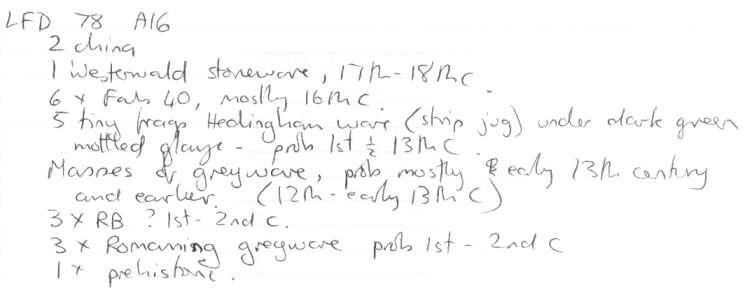 LFD 78 A16
2 china
1 Westerwald stoneware, 17th-18th C.
6 x Fab 40, mostly 16th C.
5 tiny frags Hedingham ware (strip jug) under dark green
mottled glaze - prob 1st ½ 13th C
Masses of greyware, prob mostly early 13th century
and earlier. (12th - early 13th C)
3 x RB ? 1st - 2nd C.
3 x Romanising greyware prob 1st - 2nd C
1 x prehistoric.